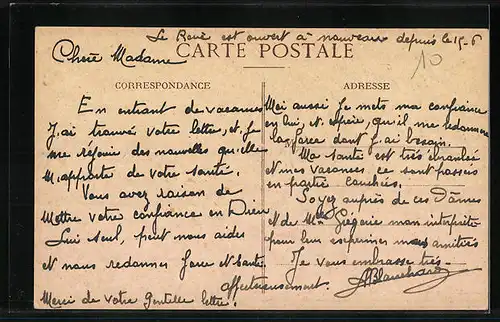 Le René est ouvert à nouveau depuis le 15-6
CARTE POSTALE
10
Chère Madame
CORRESPONDANCE
En entrant de vacances
J'ai trouvé votre lettre, et je
me réjouie des nouvelles qu'elle
m'apporte de votre santé.
Vous avez raison de
mettre votre confiance en Dieu
Lui seul, peut nous aider
et nous redonner force et santé
Merci de votre gentille lettre.
ADRESSE
Moi aussi je mets ma confiance
en lui, et espère, qu'il me redonnera
la force dont j'ai besoin.
Ma santé est très ébranlée
et mes vacances ce sont passées
en partie couchée.
Soyez auprès de ces Dames
et de Mlle mon interprète
pour leur exprimer mes amitiés
Je vous embrasse très
affectueusement. Blanchard